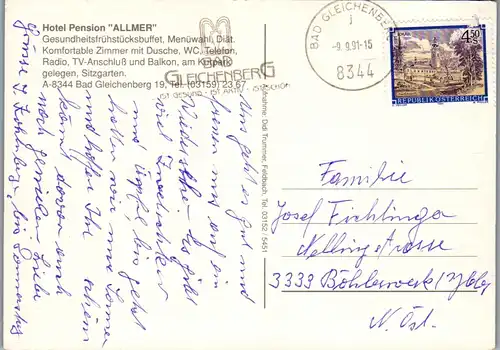 Hotel Pension "ALLMER"
Gesundheitsfrühstücksbuffet, Menüwahl, Diät.
Komfortable Zimmer mit Dusche, WC, Telefon,
Radio, TV-Anschluß und Balkon, am Kurpark
gelegen, Sitzgarten.
A-8344 Bad Gleichenberg 19, Tel. (03159) 23 67
BAD
GLEICHENBERG
BAD GLEICHENBERG
- 9. 9. 91-15
8344
4.50
REPUBLIK ÖSTERREICH
Aufnahme: Didi Trummer, Feldbach, Tel. 03152 / 5451
Uns geht es gut und
freuen uns auf ein
Wiedersehen. Es gibt
viel
und Äpfel bis jetzt
hatten wir nur Sonne
und hoffen Ihr
könnt davon auch
noch genießen. Liebe
Grüsse
bis Donnerstag
Familie
Josef Fichlinger
Nellingstrasse
3333 Böhlerwerk / Ybbs
N. Öst.